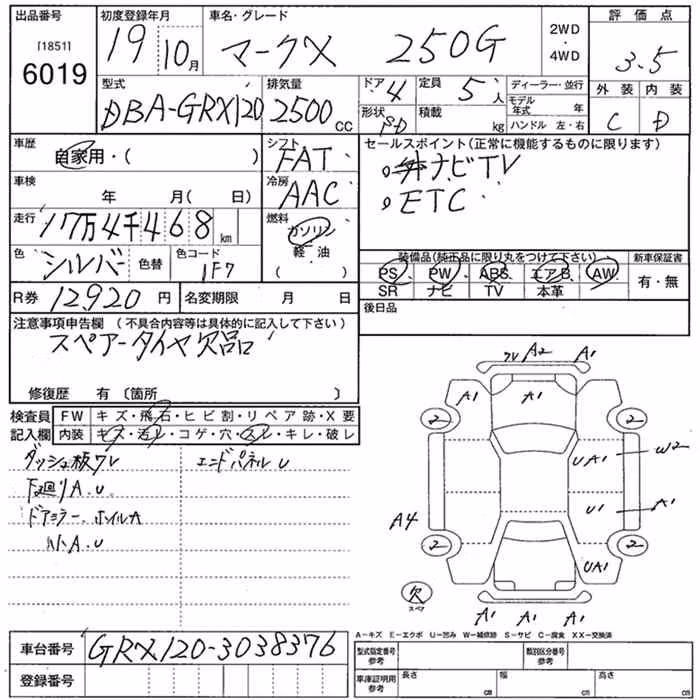 出品番号 初度登録年月 車名・グレード 評価点
[1851] 6019 19 10月 マークX 250G 2WD ・ 4WD 3.5
外装 内装
C D
型式 排気量 ドア 定員 ディーラー・並行
DBA-GRX120 2500cc 4 5人 モデル年式 年
形状 積載 kg ハンドル 左・右
車歴 シフト セールスポイント(正常に機能するものに限ります)
自家用・( ) FAT
ナビTV
車検 冷房
年 月( 日) AAC ETC
走行 燃料
17万4千468km ガソリン
軽・油
( )
色 色替 色コード
シルバー 1F7
装備品(純正品に限り丸をつけて下さい) 新車保証書
PS PW ABS エアB AW 有・無
SR ナビ TV 本革
R券 12920円 名変期限 月 日
後日品
注意事項申告欄 (不具合内容等は具体的に記入して下さい)
スペアータイヤ欠品
修復歴 有〔箇所 〕
検査員 FW キズ・飛石・ヒビ割・リペア跡・X要
記入欄 内装 キズ・汚レ・コゲ・穴・スレ・キレ・破レ
ダッシュ板ワレ エンドパネルU
下廻りA.U
ドアミラー.ホイルA
小A.U
ワレ A2 A1
A1 A1
2 2
UA1 W2
U1 A1
A4
2 2
UA1
欠
スペア
A1 A1 A1
A-キズ E-エクボ U-凹み W-補修跡 S-サビ C-腐食 XX-交換済
車台番号 GRX120-3038376
登録番号
型式指定番号 参考 類別区分番号 参考
車庫証明用 参考 長さ cm 幅 cm 高さ cm